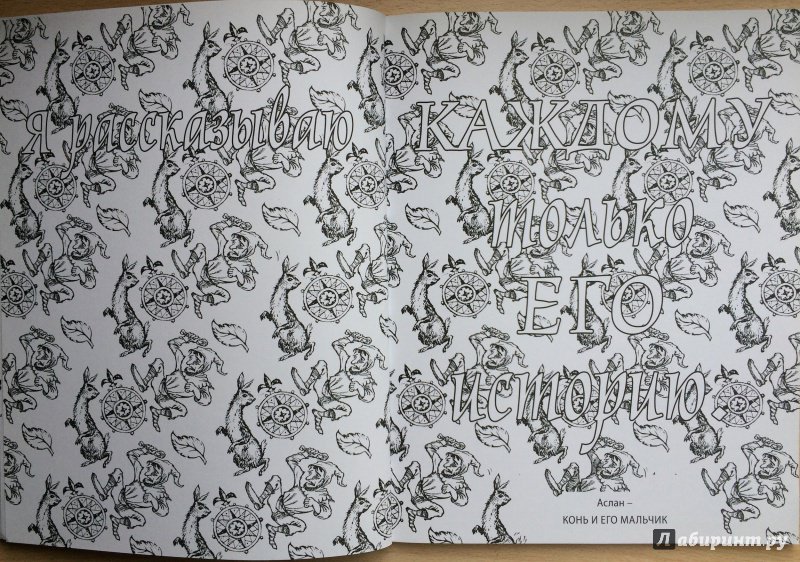 я рассказываю КАЖДОМУ
только
ЕГО
историю
Аслан –
КОНЬ И ЕГО МАЛЬЧИК
Лабиринт.ру